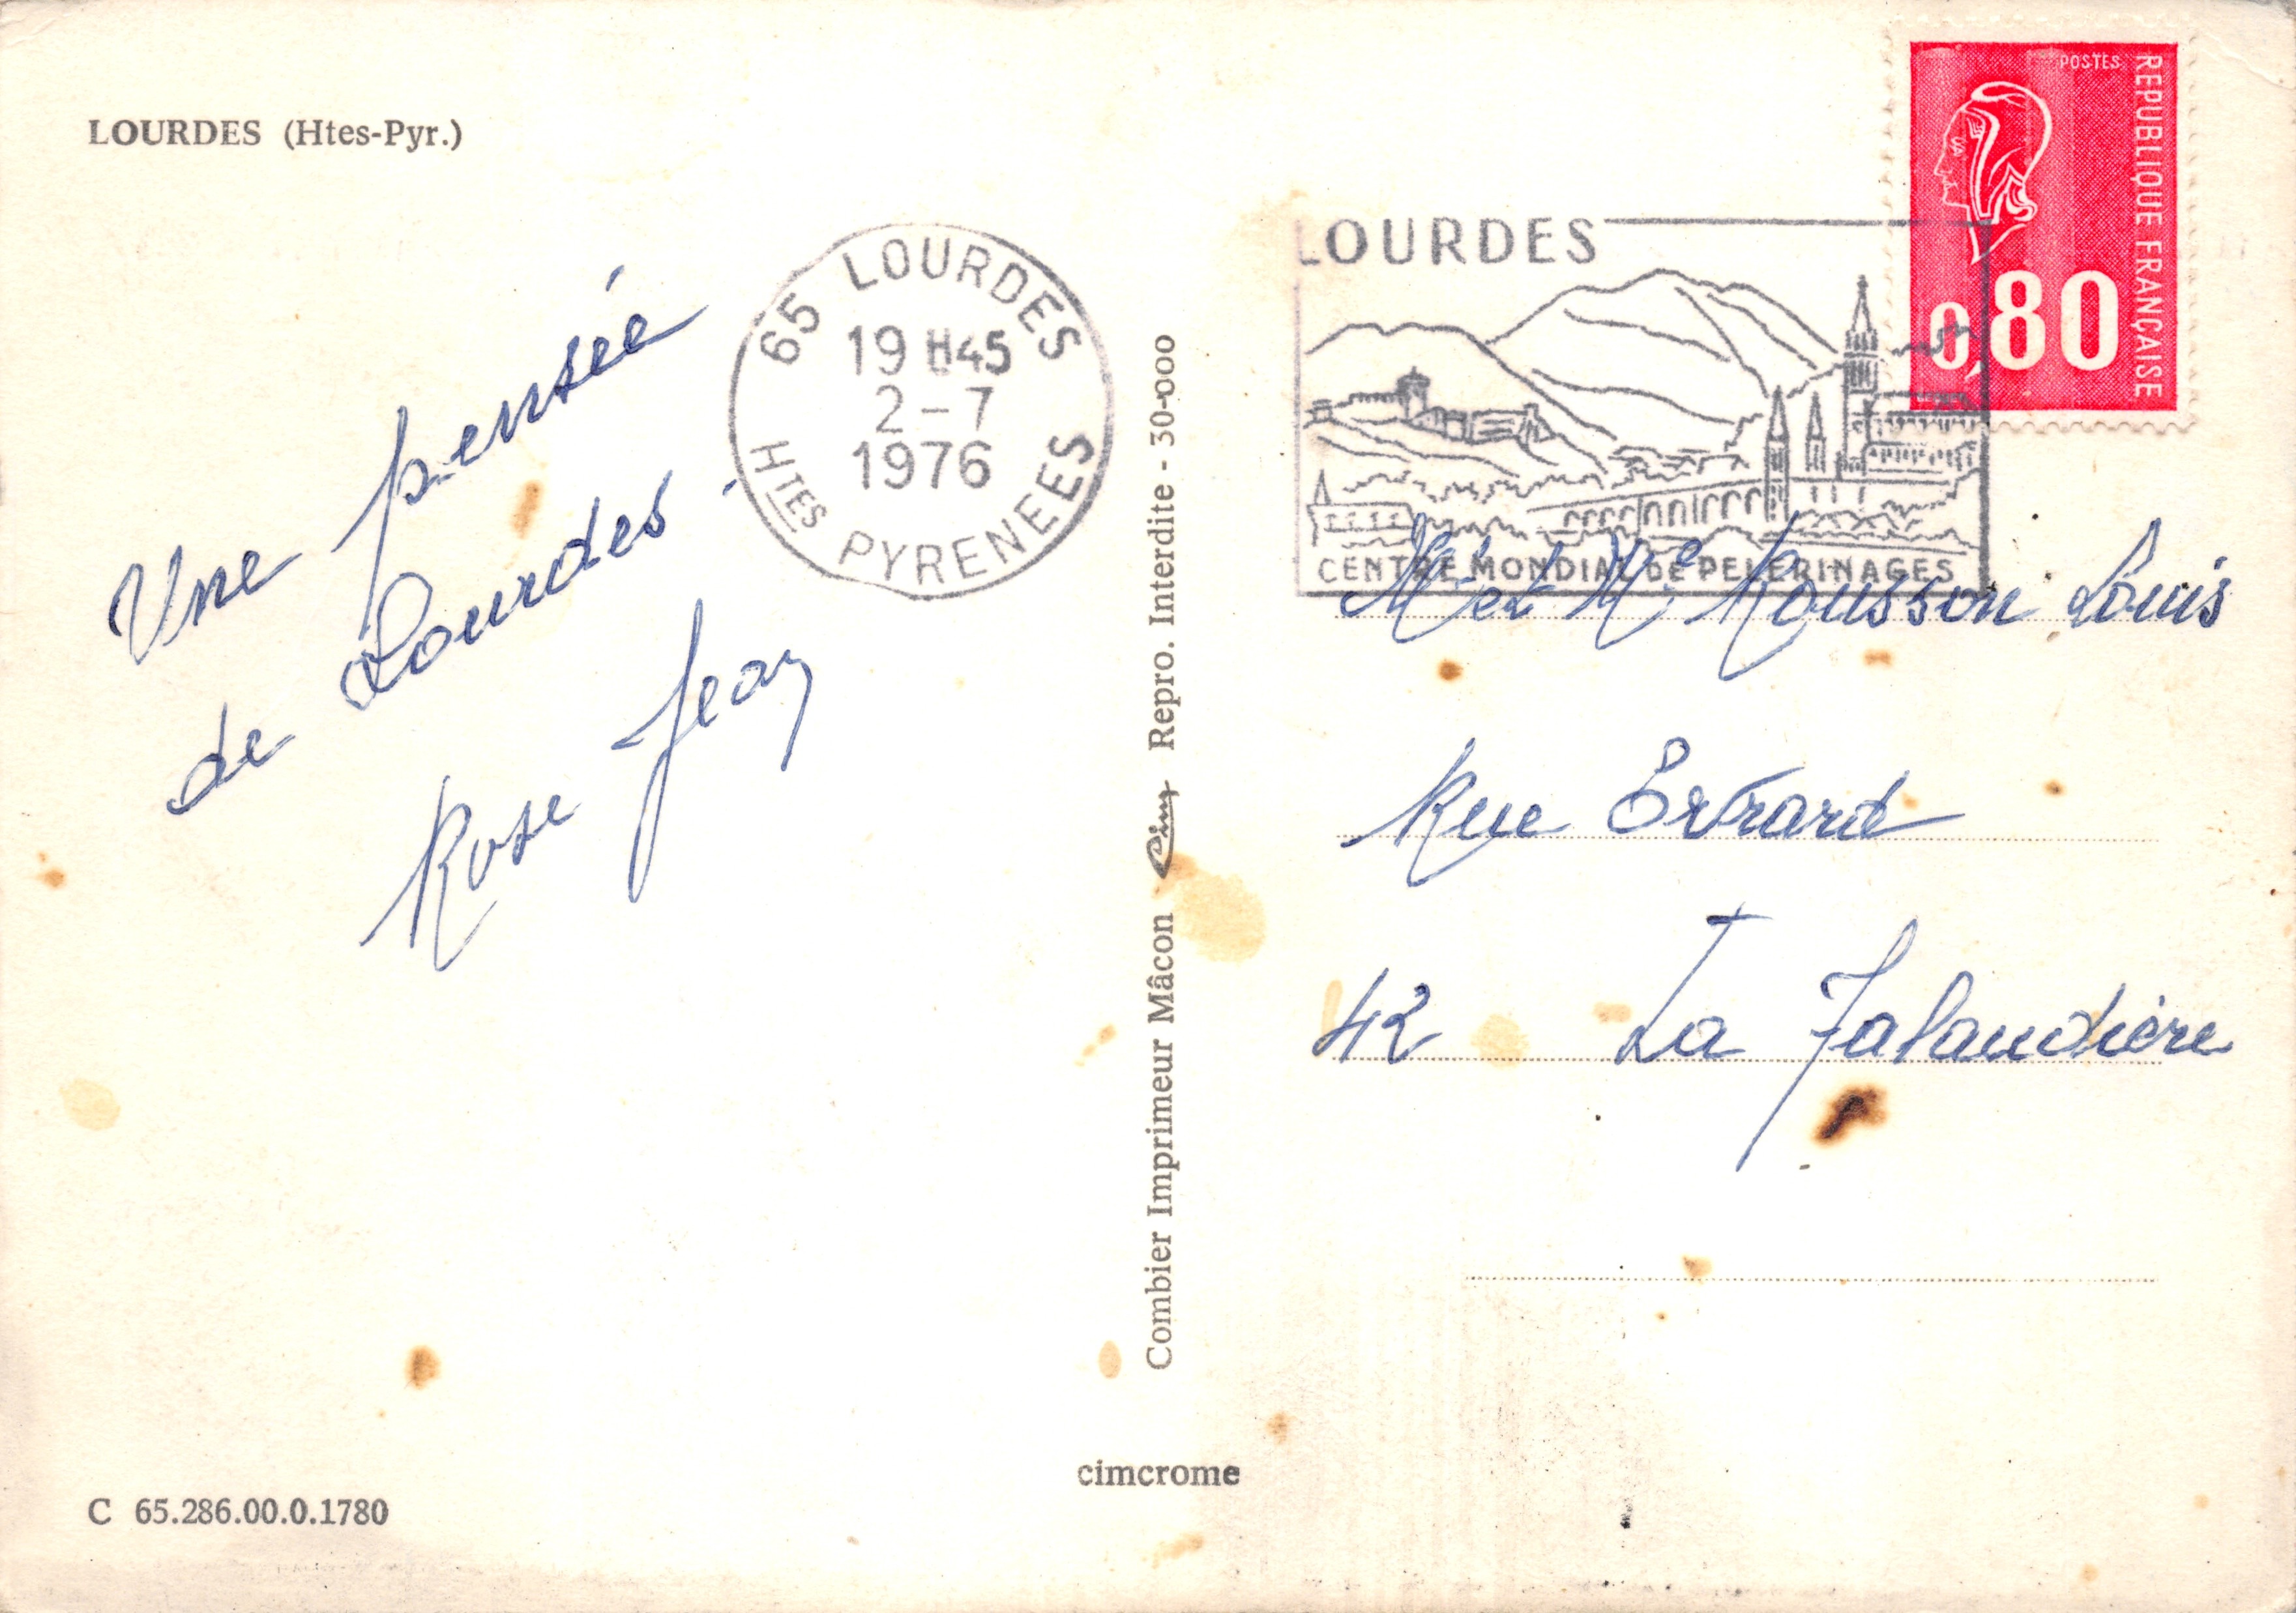 LOURDES (Htes-Pyr.)
Une pensée
de Lourdes.
Rose Jean
65 LOURDES
19 H45
2-7
1976
Htes PYRENEES
Combier Imprimeur Mâcon Cim Repro. Interdite - 30-000
LOURDES
CENTRE MONDIAL DE PELERINAGES
POSTES
REPUBLIQUE FRANÇAISE
0,80
Mr et Me Rousson Louis
Rue Evrard
42 La Talaudière
cimcrome
C 65.286.00.0.1780